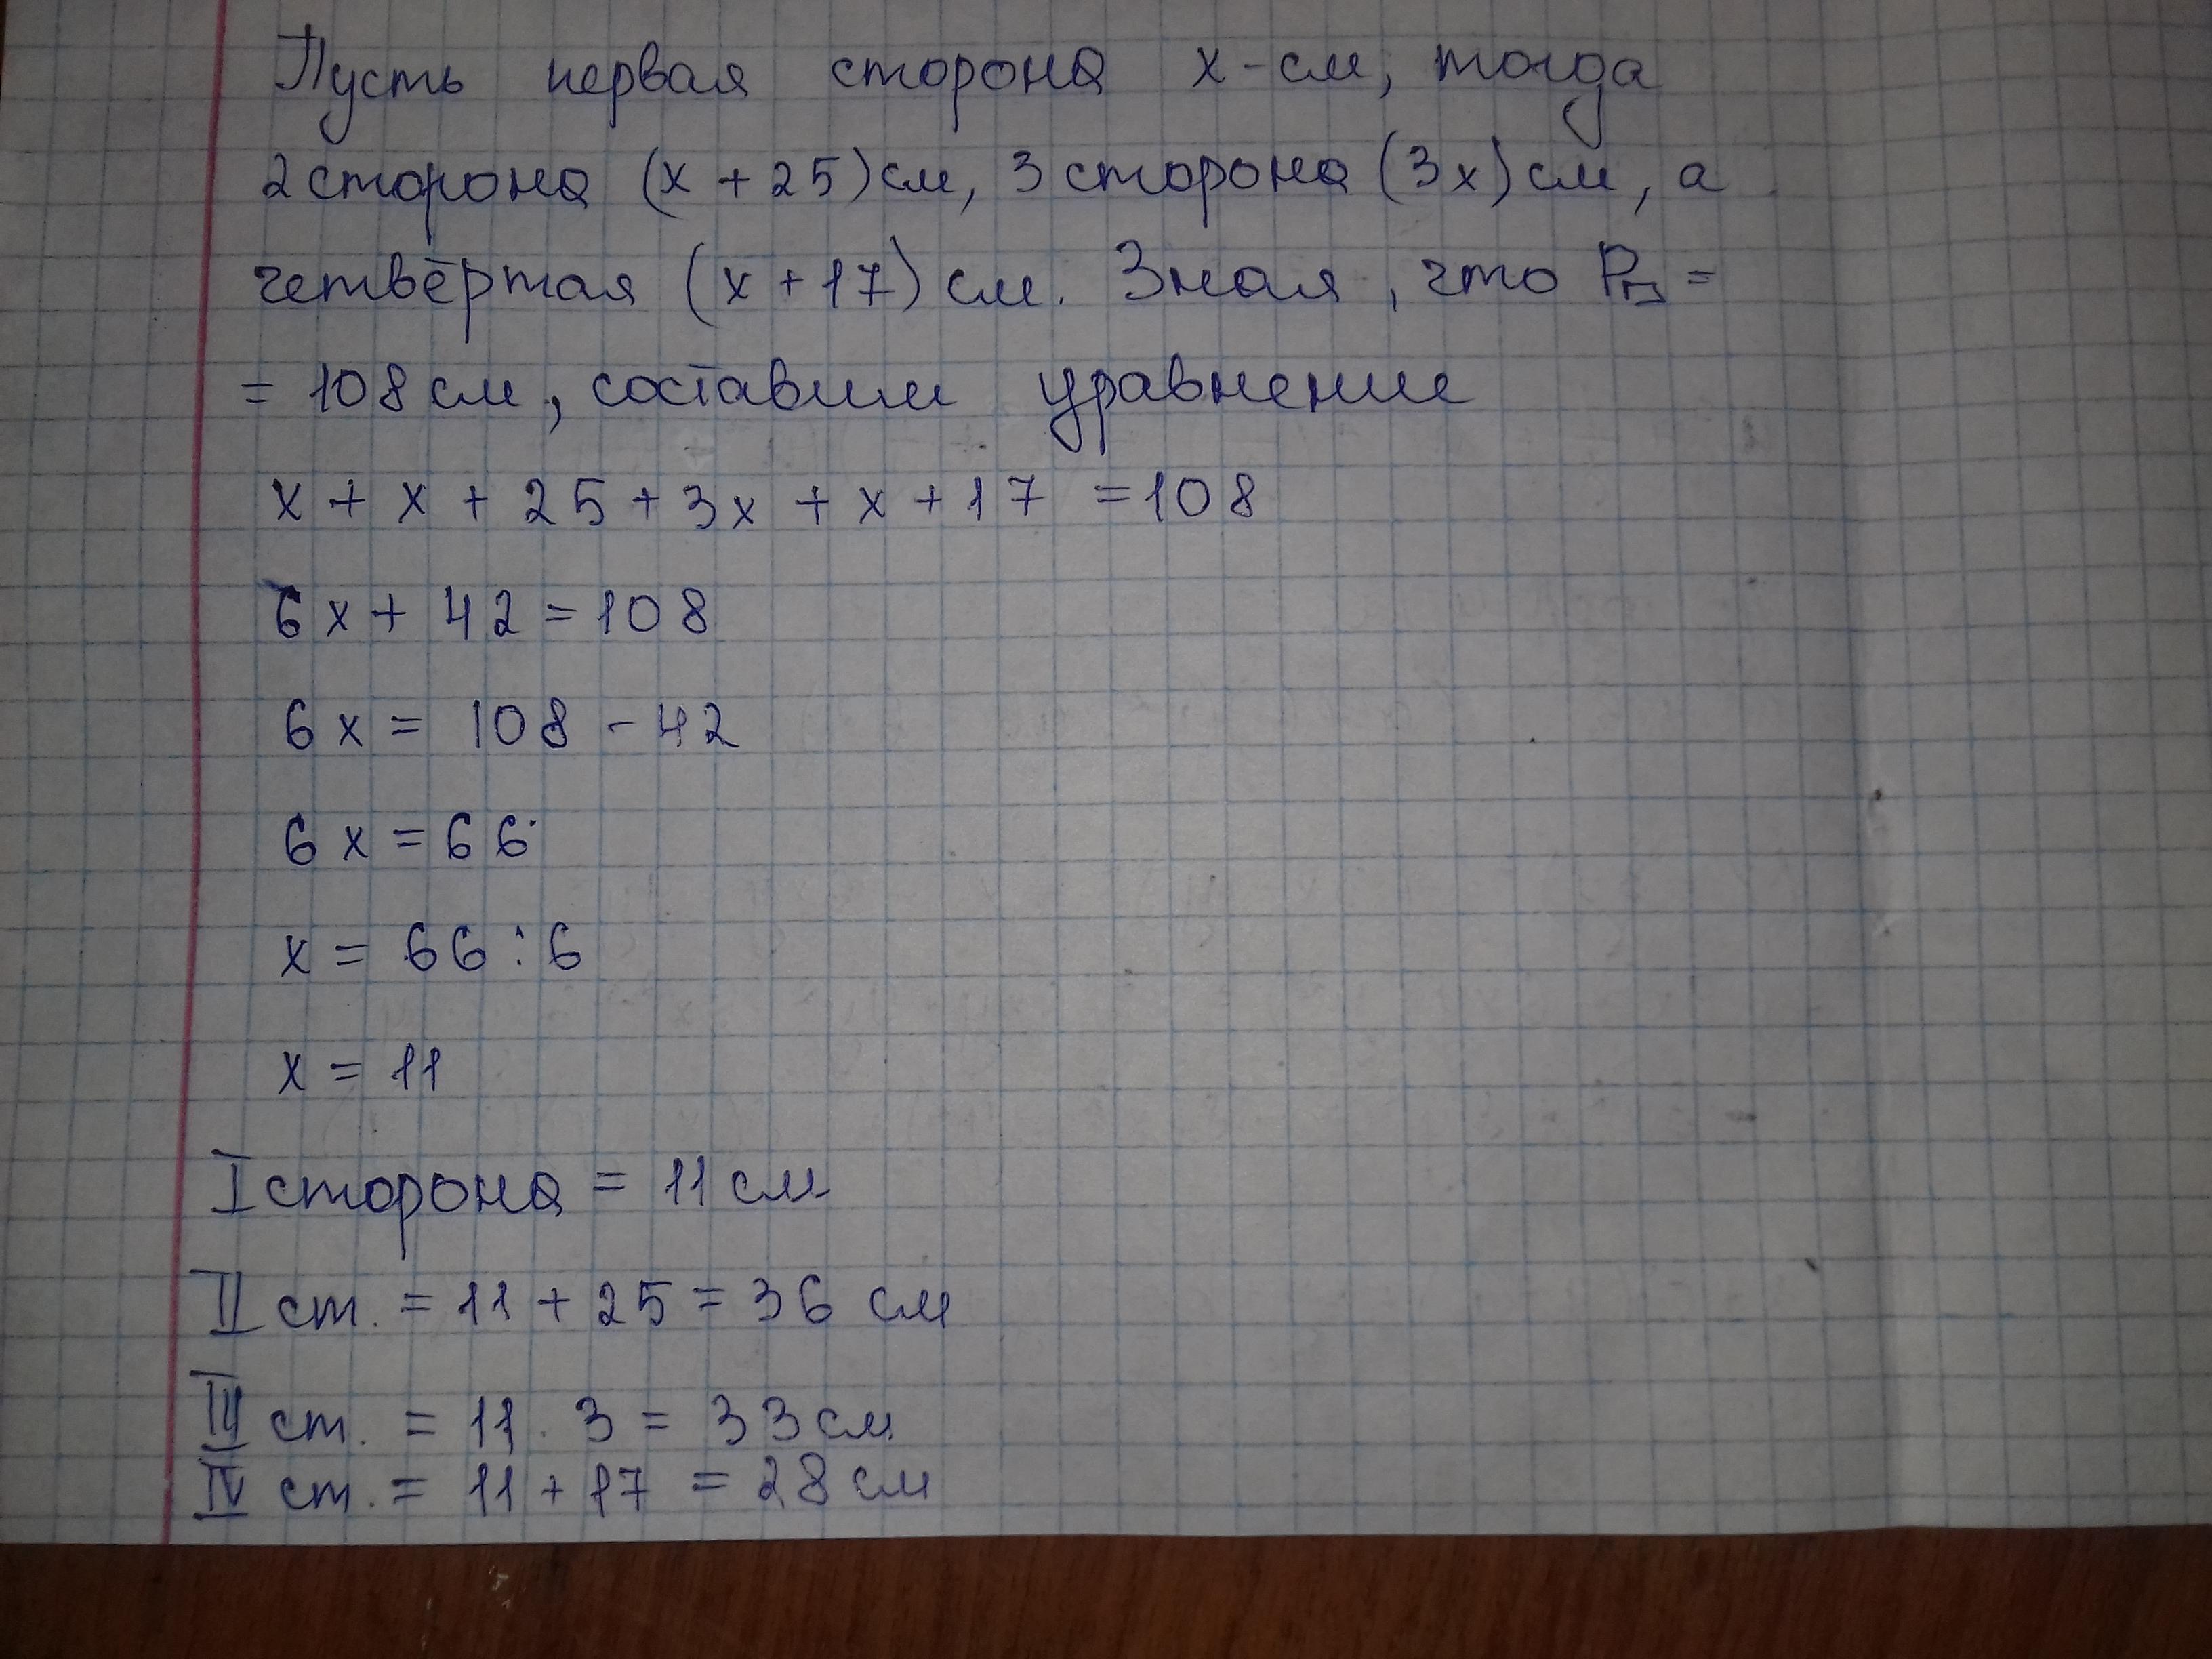 Пусть первая сторона х-см, тогда
2 сторона (х + 25) см, 3 сторона (3х) см, а
четвёртая (х + 17) см. Зная, что P▭ =
= 108 см, составим уравнение
х + х + 25 + 3х + х + 17 = 108
6х + 42 = 108
6х = 108 - 42
6х = 66
х = 66 : 6
х = 11
I сторона = 11 см
II ст. = 11 + 25 = 36 см
III ст. = 11 · 3 = 33 см
IV ст. = 11 + 17 = 28 см